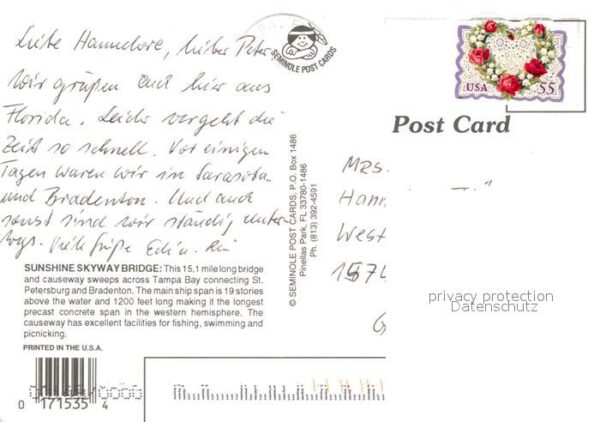 Liebe Hannelore, lieber Peter
wir grüßen Euch hier aus
Florida. Leider vergeht die
Zeit so schnell. Vor einigen
Tagen waren wir in Sarasota
und Bradenton. Und auch
sonst sind wir ständig unter-
wegs. Viele Grüße
SUNSHINE SKYWAY BRIDGE: This 15.1 mile long bridge
and causeway sweeps across Tampa Bay connecting St.
Petersburg and Bradenton. The main ship span is 19 stories
above the water and 1200 feet long making it the longest
precast concrete span in the western hemisphere. The
causeway has excellent facilities for fishing, swimming and
picnicking.
PRINTED IN THE U.S.A.
0 171535 4
SEMINOLE POST CARDS
© SEMINOLE POST CARDS, P.O. Box 1486
Pinellas Park, FL 33780-1486
Ph. (813) 392-4591
USA 55
Post Card
MRS.
Hann
West
privacy protection
Datenschutz